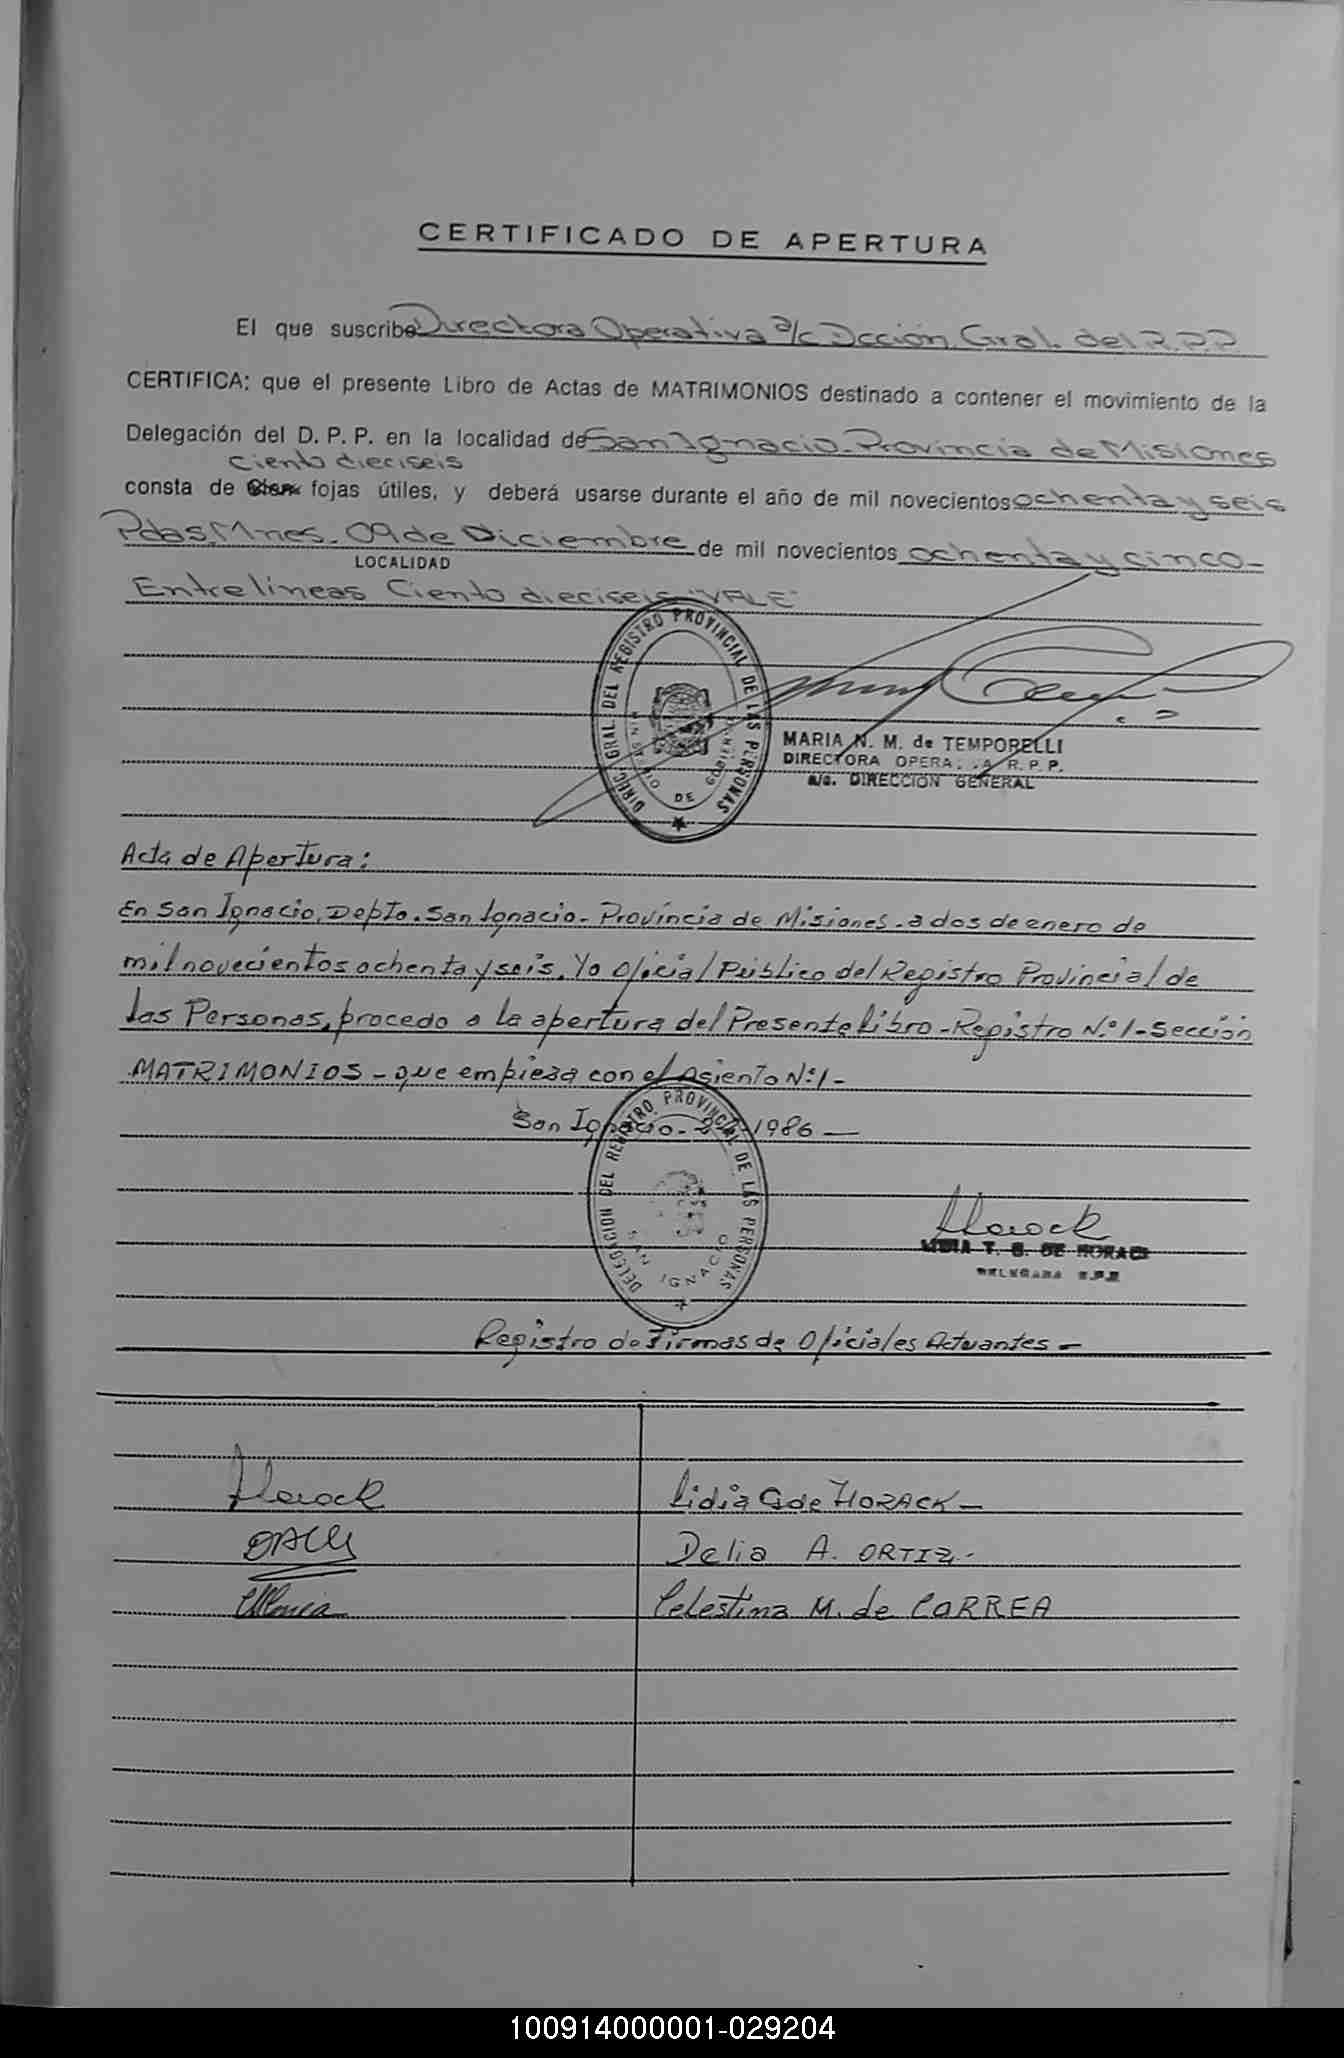 CERTIFICADO DE APERTURA
El que suscribe Directora Operativa a/c Dcción Gral. del R.P.P.
CERTIFICA: que el presente Libro de Actas de MATRIMONIOS destinado a contener el movimiento de la
Delegación del D. P. P. en la localidad de San Ignacio - Provincia de Misiones
ciento dieciseis
consta de fojas útiles, y deberá usarse durante el año de mil novecientos ochenta y seis
Pdas. Mnes. 09 de Diciembre de mil novecientos ochenta y cinco-
LOCALIDAD
Entrelíneas Ciento dieciseis "VALE"
DIREC. GRAL. DEL REGISTRO PROVINCIAL DE LAS PERSONAS
MINISTERIO DE GOBIERNO
MARIA N. M. de TEMPORELLI
DIRECTORA OPERA. .A R. P. P.
a/c. DIRECCION GENERAL
Acta de Apertura:
En San Ignacio, Depto. San Ignacio - Provincia de Misiones - a dos de enero de
mil novecientos ochenta y seis, Yo Oficial Público del Registro Provincial de
las Personas, procedo a la apertura del Presente Libro - Registro N.º 1 - Sección
MATRIMONIOS - que empieza con el Asiento Nº 1 -
San Ignacio - 2 1986 —
DELEGACION DEL REGISTRO PROVINCIAL DE LAS PERSONAS
SAN IGNACIO
Horack
LIDIA T. G. DE HORACK
DELEGADA R.P.P.
Registro de Firmas de Oficiales Actuantes -
Horack Lidia G de HORACK -
Delia A. ORTIZ -
Celestina M. de CORREA
100914000001-029204